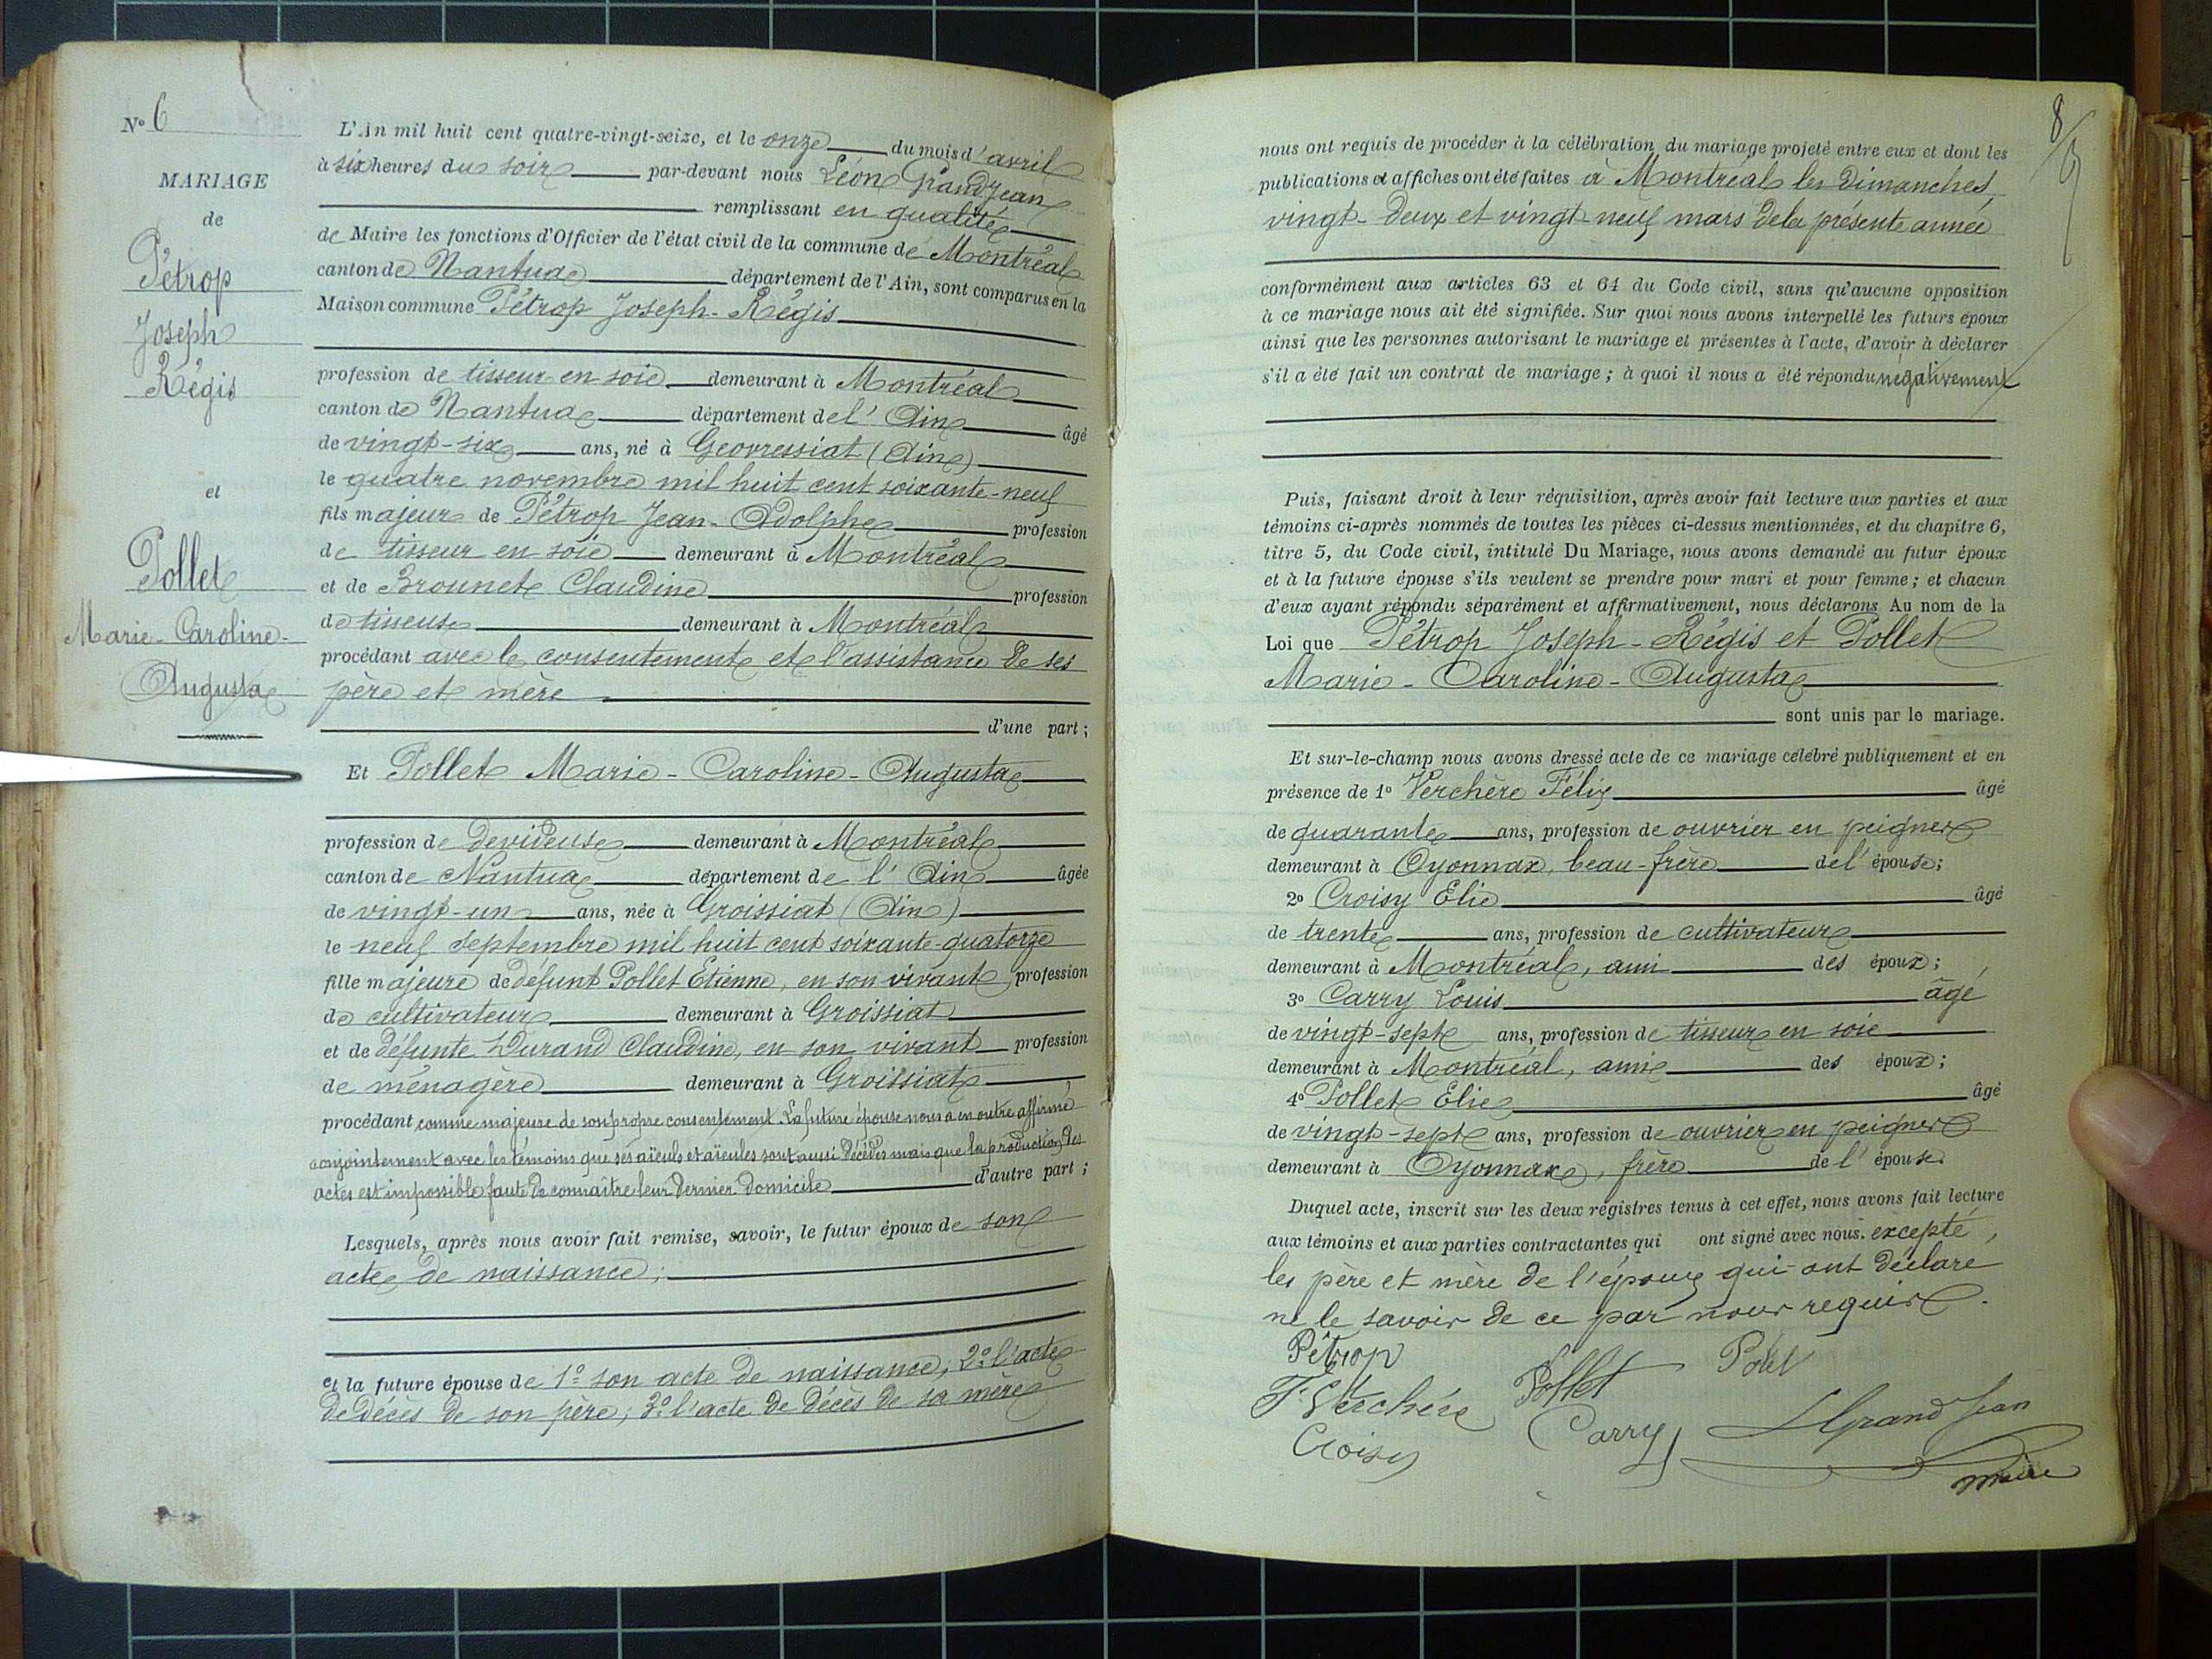 N° 6
MARIAGE
de
Pétrop
Joseph
Régis
et
Pollet
Marie-Caroline-
Augusta
L'An mil huit cent quatre-vingt-seize, et le onze du mois d'avril
à six heures du soir par-devant nous Léon Grandjean
remplissant en qualité
de Maire les fonctions d'Officier de l'état civil de la commune de Montréal
canton de Nantua département de l'Ain, sont comparus en la
Maison commune Pétrop Joseph-Régis
profession de tisseur en soie demeurant à Montréal
canton de Nantua département de l'Ain âgé
de vingt-six ans, né à Geovressiat (Ain)
le quatre novembre mil huit cent soixante-neuf
fils majeur de Pétrop Jean-Adolphe profession
de tisseur en soie demeurant à Montréal
et de Brounet Claudine profession
de tisseuse demeurant à Montréal
procédant avec le consentement et l'assistance de ses
père et mère
d'une part ;
Et Pollet Marie-Caroline-Augusta
profession de devideuse demeurant à Montréal
canton de Nantua département de l'Ain âgée
de vingt-un ans, née à Groissiat (Ain)
le neuf septembre mil huit cent soixante-quatorze
fille majeure de défunt Pollet Etienne, en son vivant profession
de cultivateur demeurant à Groissiat
et de défunte Durand Claudine, en son vivant profession
de ménagère demeurant à Groissiat
procédant comme majeure de son propre consentement. La future épouse nous a en outre affirmé
conjointement avec les témoins que ses aïeuls et aïeules sont aussi décédés mais que la production des
actes est impossible faute de connaître leur dernier domicile d'autre part ;
Lesquels, après nous avoir fait remise, savoir, le futur époux de son
acte de naissance ;
et la future épouse de 1° son acte de naissance ; 2° l'acte
de décès de son père ; 3° l'acte de décès de sa mère
8
nous ont requis de procéder à la célébration du mariage projeté entre eux et dont les
publications et affiches ont été faites à Montréal les dimanches
vingt-deux et vingt-neuf mars de la présente année
conformément aux articles 63 et 64 du Code civil, sans qu'aucune opposition
à ce mariage nous ait été signifiée. Sur quoi nous avons interpellé les futurs époux
ainsi que les personnes autorisant le mariage et présentes à l'acte, d'avoir à déclarer
s'il a été fait un contrat de mariage ; à quoi il nous a été répondu négativement
Puis, faisant droit à leur réquisition, après avoir fait lecture aux parties et aux
témoins ci-après nommés de toutes les pièces ci-dessus mentionnées, et du chapitre 6,
titre 5, du Code civil, intitulé Du Mariage, nous avons demandé au futur époux
et à la future épouse s'ils veulent se prendre pour mari et pour femme ; et chacun
d'eux ayant répondu séparément et affirmativement, nous déclarons Au nom de la
Loi que Pétrop Joseph-Régis et Pollet
Marie-Caroline-Augusta
sont unis par le mariage.
Et sur-le-champ nous avons dressé acte de ce mariage célébré publiquement et en
présence de 1° Verchère Félix âgé
de quarante ans, profession de ouvrier en peignes
demeurant à Oyonnax, beau-frère de l'épouse ;
2° Croisy Elie âgé
de trente ans, profession de cultivateur
demeurant à Montréal, ami des époux ;
3° Carry Louis âgé
de vingt-sept ans, profession de tisseur en soie
demeurant à Montréal, ami des époux ;
4° Pollet Elie âgé
de vingt-sept ans, profession de ouvrier en peignes
demeurant à Oyonnax, frère de l'épouse.
Duquel acte, inscrit sur les deux régistres tenus à cet effet, nous avons fait lecture
aux témoins et aux parties contractantes qui ont signé avec nous. excepté,
les père et mère de l'époux qui ont déclaré
ne le savoir de ce par nous requis.
Pétrop Pollet
F. Verchère Carry L Grand Jean
Croisy maire